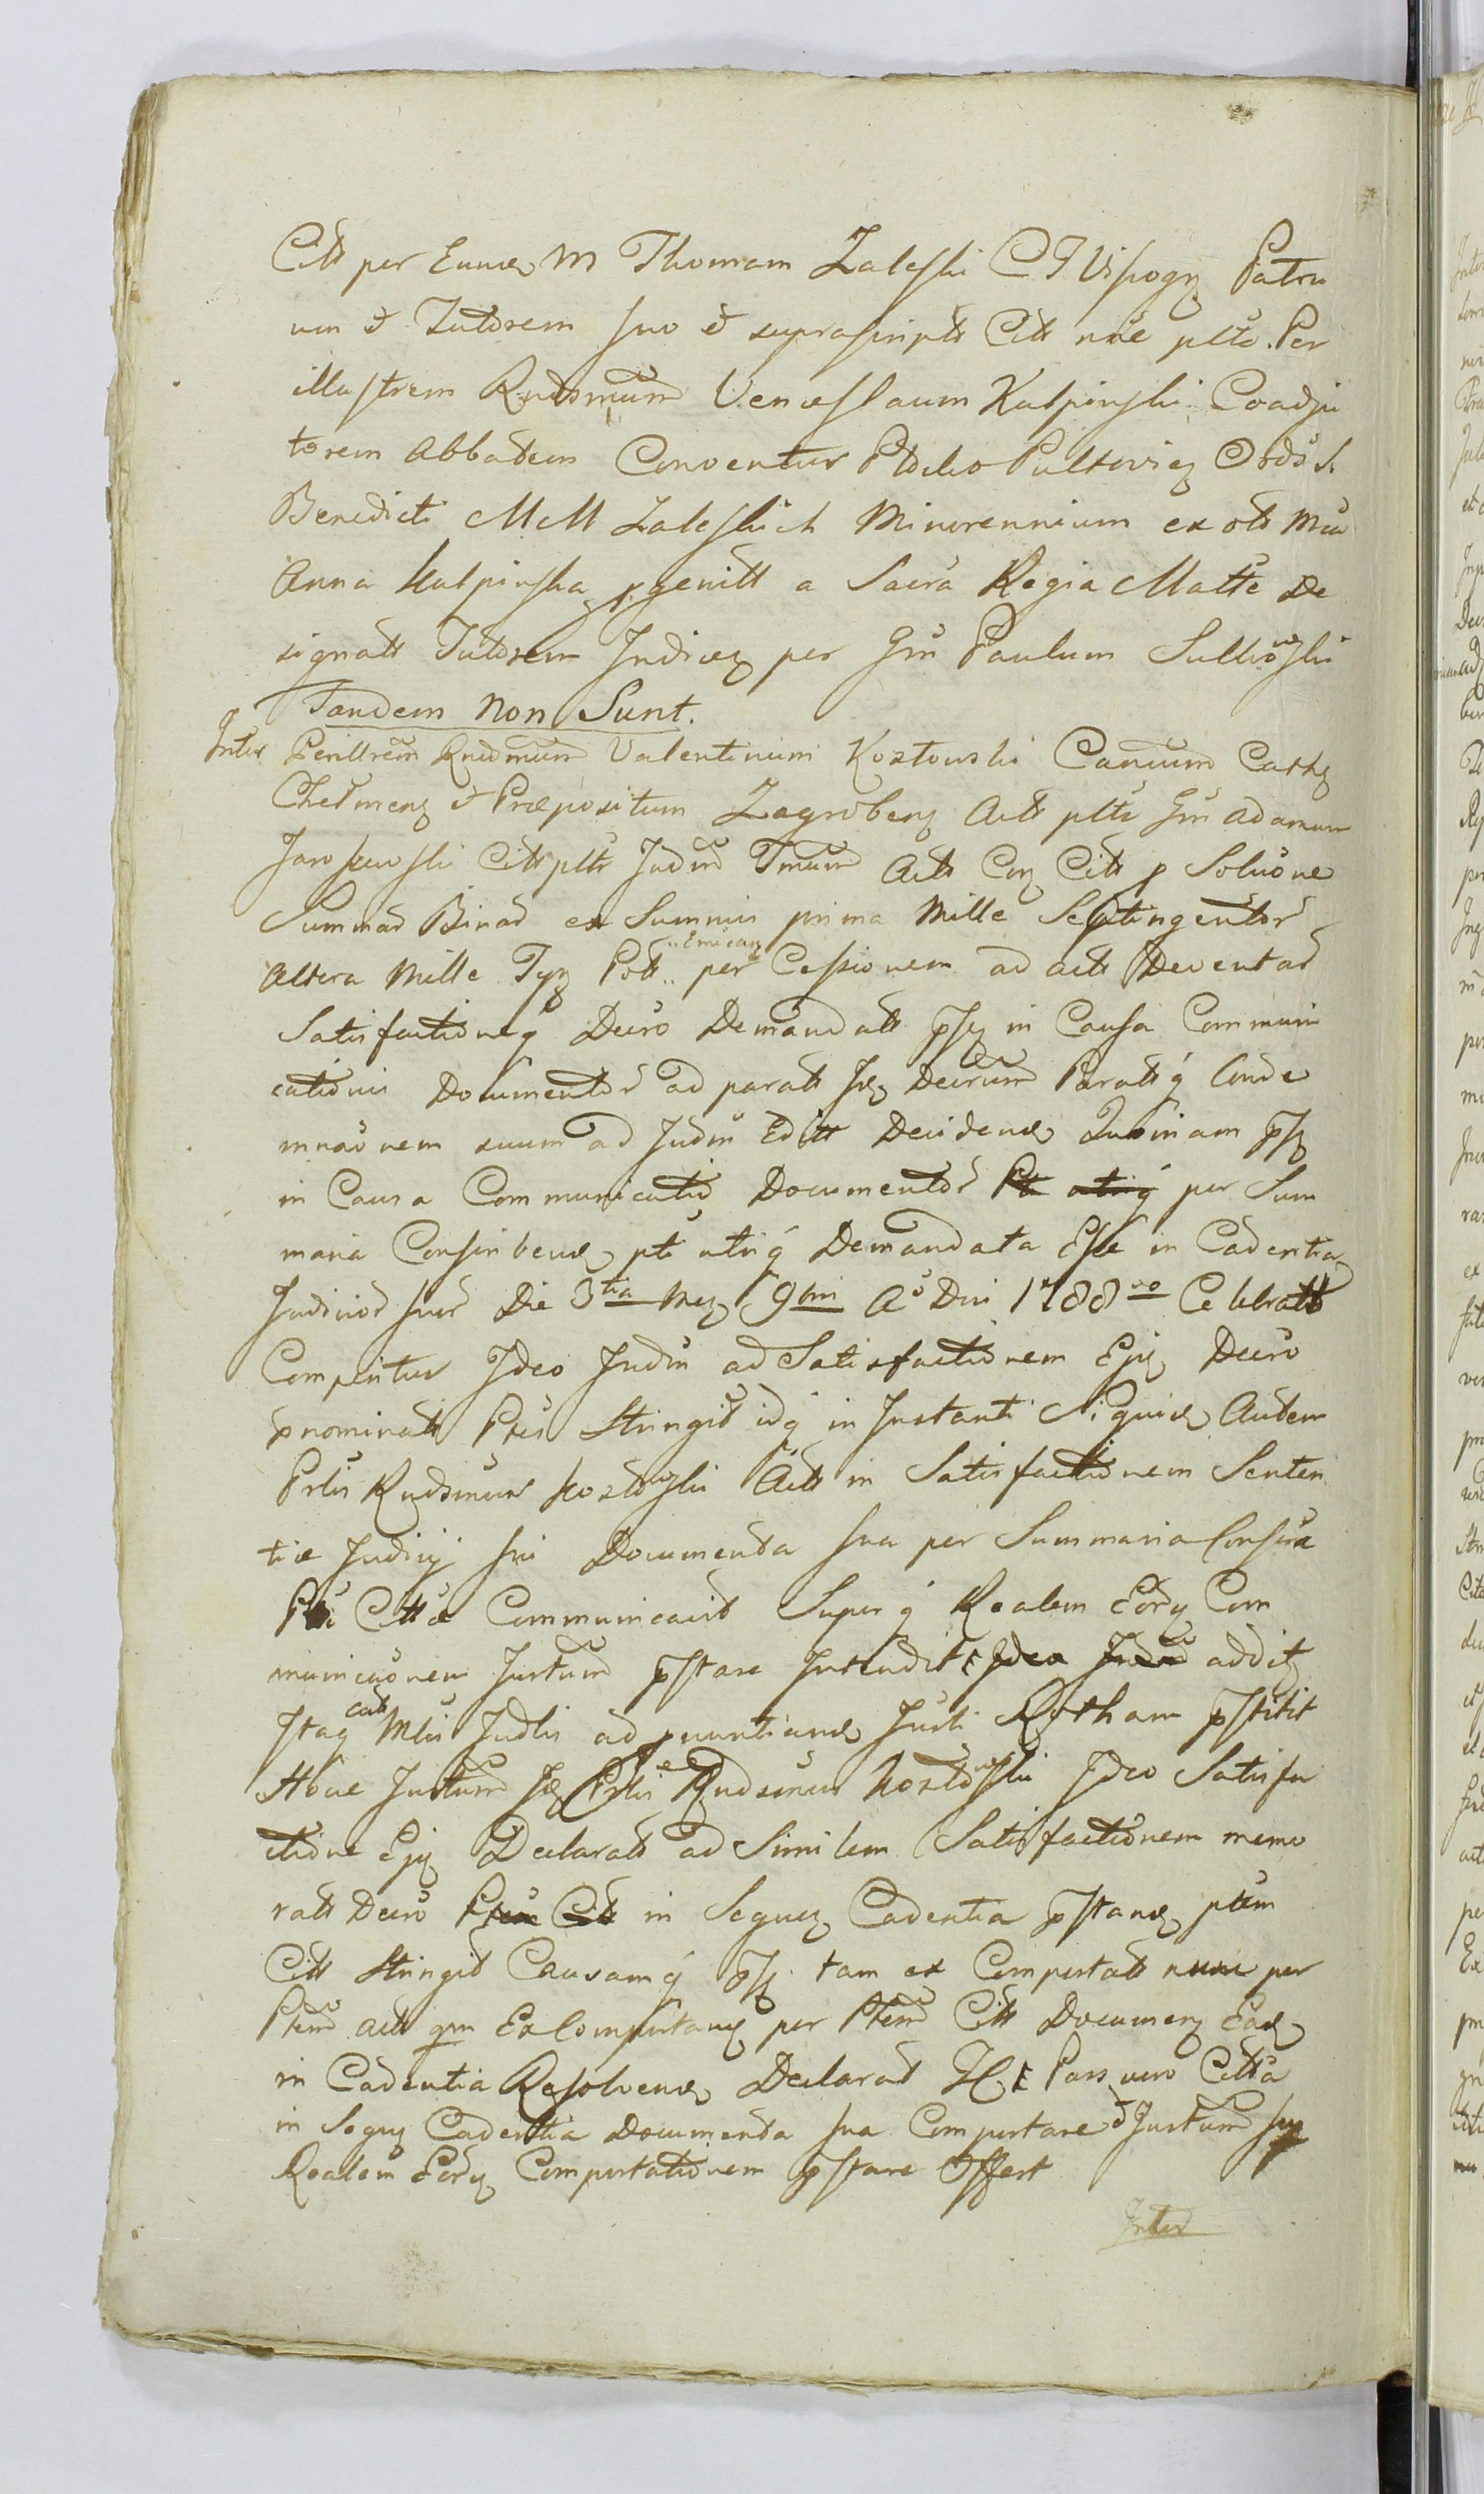 Citt per Eund M Thomam Zaleski C T Visogz Patru
um et Tutorem suo et suprascriptt Citt nōe pltē. Per
illustrem Rndsmum Venceslaum Kulpinski Coadju
torem Abbatem Conventus Pultoviez Ords S.
Benedicti MM Zaleskich Minorennium ex olt Mcu
Anna Kulpinska pgenitt a Sacra Regia Matte De
signatt Tutorem Judicez per Gm Paulum Sulkowski
Tandem Non Sunt.
Inter Perillrem Rndmum Valentinum Kozłowski Canum Cathz
Chełmenz et Præpositum Zagrobenz Actt pltē Gm Adamum
Jaroszewski Citt pltē Judm Tmum Actt Conz Citt p Solučone
Summar Binar ex Summis prima Mille Septingentor
altera Mille Tyz Poll Emican per Cessionem ad actt Deventar
Satisfactioneq Decro Demandatt pssz in Causa Communi
cationis Documentor ad paratt Decrum Paratsq Conde
mnaōnem suum ad Judm Editt Decidend Quoniam pssz
in Causa Communicatio Documentor per Sum
maria Conscribend pti utriq Demandata Esse in Cadentia
Judicior suor Die 3tia Mez 9bri Aō Dni 1788vo Celebratt
Comperitur Ideo Judm ad Satisfactionem Ejz Decro
pnominatt Ptes Stringit idq in Instanti Siquid Autem
Prlis Rndsmus Kozłowski Actt in Satisfactionem Senten
tiæ Judicij sui Documenta sua per Summaria Conscra
Pti Cittæ Communicavit Superq Realem Eorz Com
municaōnem Jurtum pstare Intendit Ideo Judm additz
Istaq Mlis Judlis ad pnuntiand Jurti Rotham pstitit
Hocce Jurtum Prlis Rndsmus Kozłowski Ideo Satisfa
ctione Ejz Declaratt ad Similem Satisfactionem memo
ratt Decro in Sequez Cadentia pstand ptem
Citt Stringit Causamq pssz tam ex Comportatt nunc per
Ptem actt qm Ex Comportandz per Ptem Citt Documenz Ead
in Cadentia Resolvend Declarat Pars vero Citta
in Sequz Cadentia Documenta sua Comportare et Jurtum suz
Realem Eorz Comportationem pstare Offert
Inter